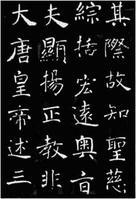 其際故知聖慈
綜括宏遠奧旨
夫顯揚正教非
大唐皇帝述三